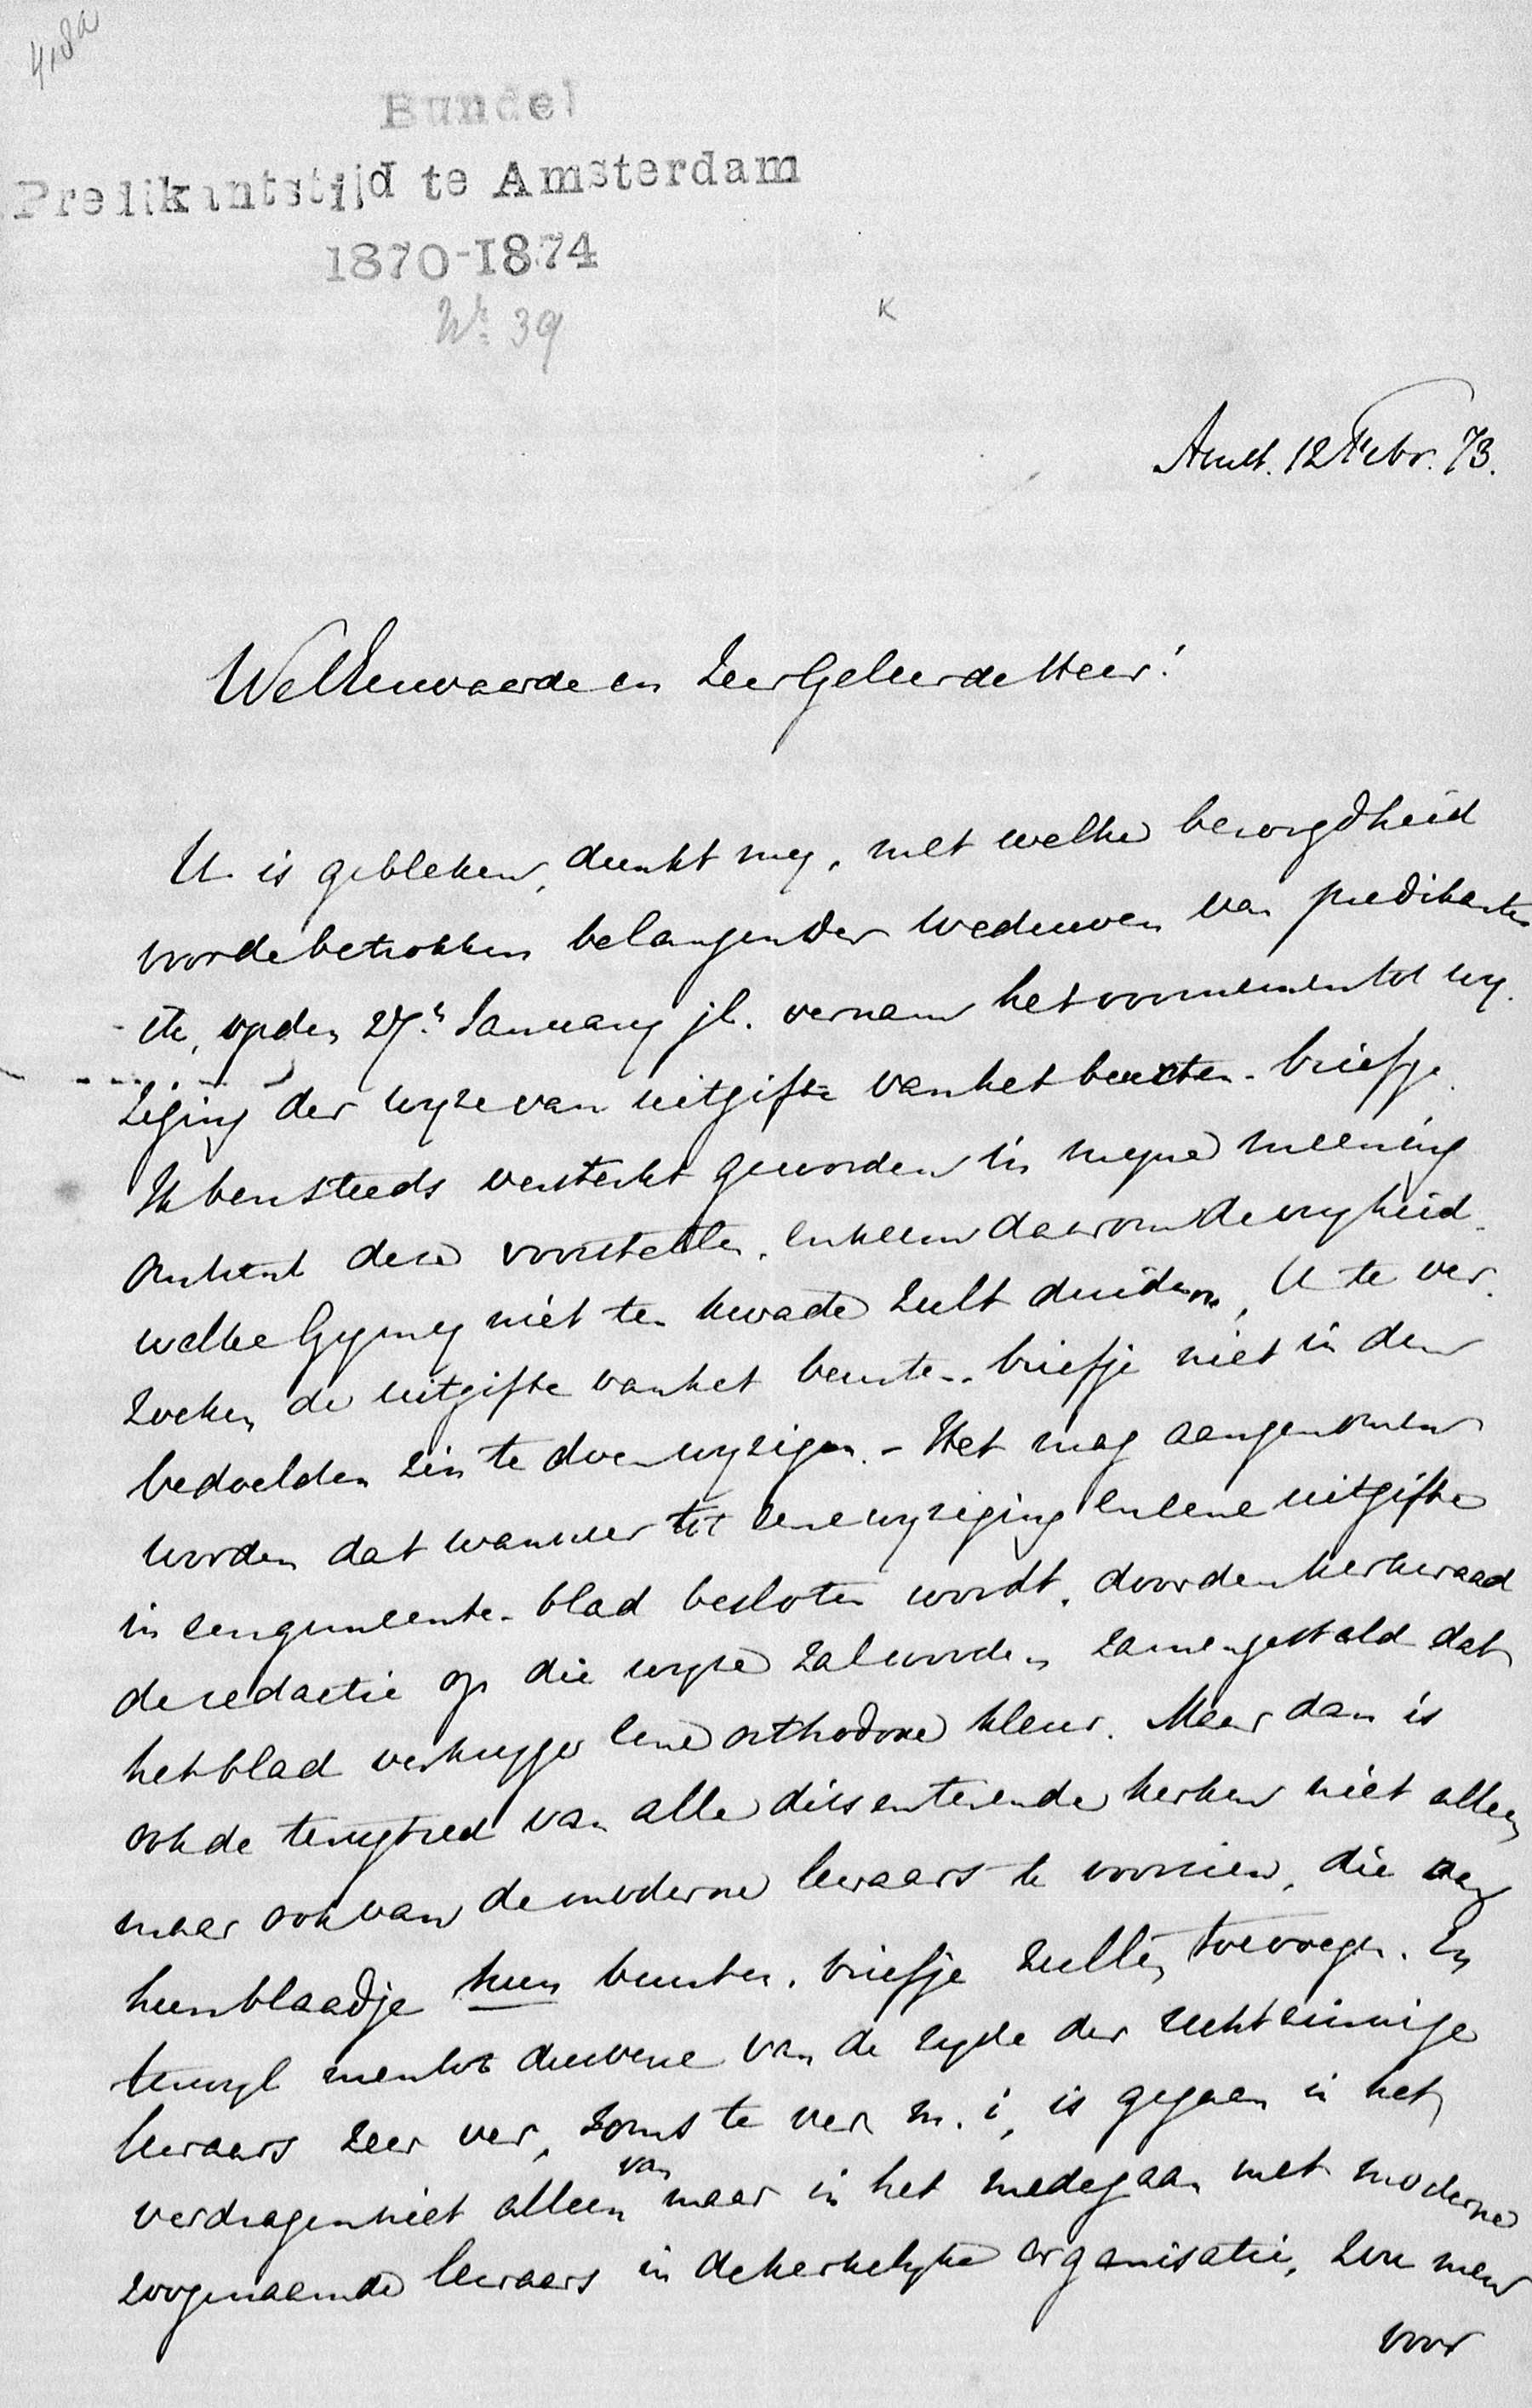 418a
Bundel
Predikantstijd te Amsterdam
1870-1874
No 39
K
Amst. 12 Febr. 73.
WelEerwaarde en Zeer Geleerde Heer!
U is gebleken, dunkt my, met welke bezorgdheid
voor de betrokken belangen der weduwen van predikanten
ik, op den 27n January jl. vernam het voornemen tot wy-
ziging der wyze van uitgifte van het beurten-briefje.
Ik ben steeds versterkt geworden in myne meening
omtrent deze voorstellen, en neem daarom de vryheid
welke Gy my niet ten kwade zult duiden, U te ver-
zoeken de uitgifte van het beurten-briefje niet in den
bedoelden zin te doen wyzigen. - Het mag aangenomen
worden dat wanneer tot eene wyziging en eene uitgifte
in een gemeente-blad besloten wordt, door den kerkeraad
de redactie op die wyze zal worden zamengesteld dat
het blad verkrygt eene orthodoxe kleur. Maar dan is
ook de terugtred van alle dissenterende kerken niet alleen
maar ook van de moderne leeraars te voorzien, die aan
hun blaadje hun beurten-briefje zullen toevoegen. En
terwyl men tot dusverre van de zyde der rechtzinnige
leeraars zeer ver, soms te ver m. i, is gegaan in het
verdragen niet alleen van maar in het medegaan met moderne
zoogenaamde leeraars in de kerkelyke organisatie, zou men
voor